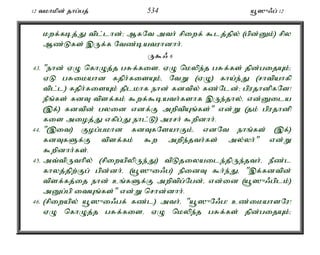 12 வமாமின் தாப்பத் 534 யூஸுஃப் 12
மறக்கடித்து விட்டான்; ஆகவே அவர் சிறைக் கூடத்தில் (பின்னும்) சில
ஆண்டுகள் இருக்க வேண்டியவரானார்.
ருகூஃ 6
43. "நான் ஏழு கொழுத்த பசுக்களை, ஏழு மெலிந்த பசுக்கள் தின்பதையும்;
ஏடு பசுமையான கதிர்களையும், வேறு (ஏழு) காய்ந்து (சாவியாகி
விட்ட) கதிர்களையும் திடமாக நான் கனவில் கண்டேன்; பிரதானிகளே!
நீங்கள் கனவு விளக்கம் கூறக்கூடியவர்களாக இருந்தால், என்னுடைய
(இக்) கனவின் பலனை எனக்கு அறிவியுங்கள்" என்று (தம் பிரதானி
களை அழைத்து எகிப்து நாட்டு) அரசர் கூறினார்.
44. "(இவை) குழப்பமான கனவுகளேயாகும், எனவே நாங்கள் (இக்)
கனவுகளுக்கு விளக்கம் கூற அறிந்தவர்கள் அல்லர்" என்று
கூறினார்கள்.
45. அவ்விருவரில் (சிறையிலிருந்து) விடுதலையடைந்திருந்தவர், நீண்ட
காலத்திற்குப் பின்னர், (யூஸுஃபை) நினைவு கூர்ந்து, "இக்கனவின்
விளக்கத்தை நான் உங்களுக்கு அறிவிப்பேன், என்னை (யூஸுஃபிடம்)
அனுப்பி வையுங்கள்" என்று சொன்னார்.
46. (சிறையில் யூஸுஃபைக் கண்ட) அவர், "யூஸுஃபே! உண்மையாளரே!
ஏழு கொழுத்த பசுக்களை, ஏழு மெலிந்த பசுக்கள் தின்பதையும்;